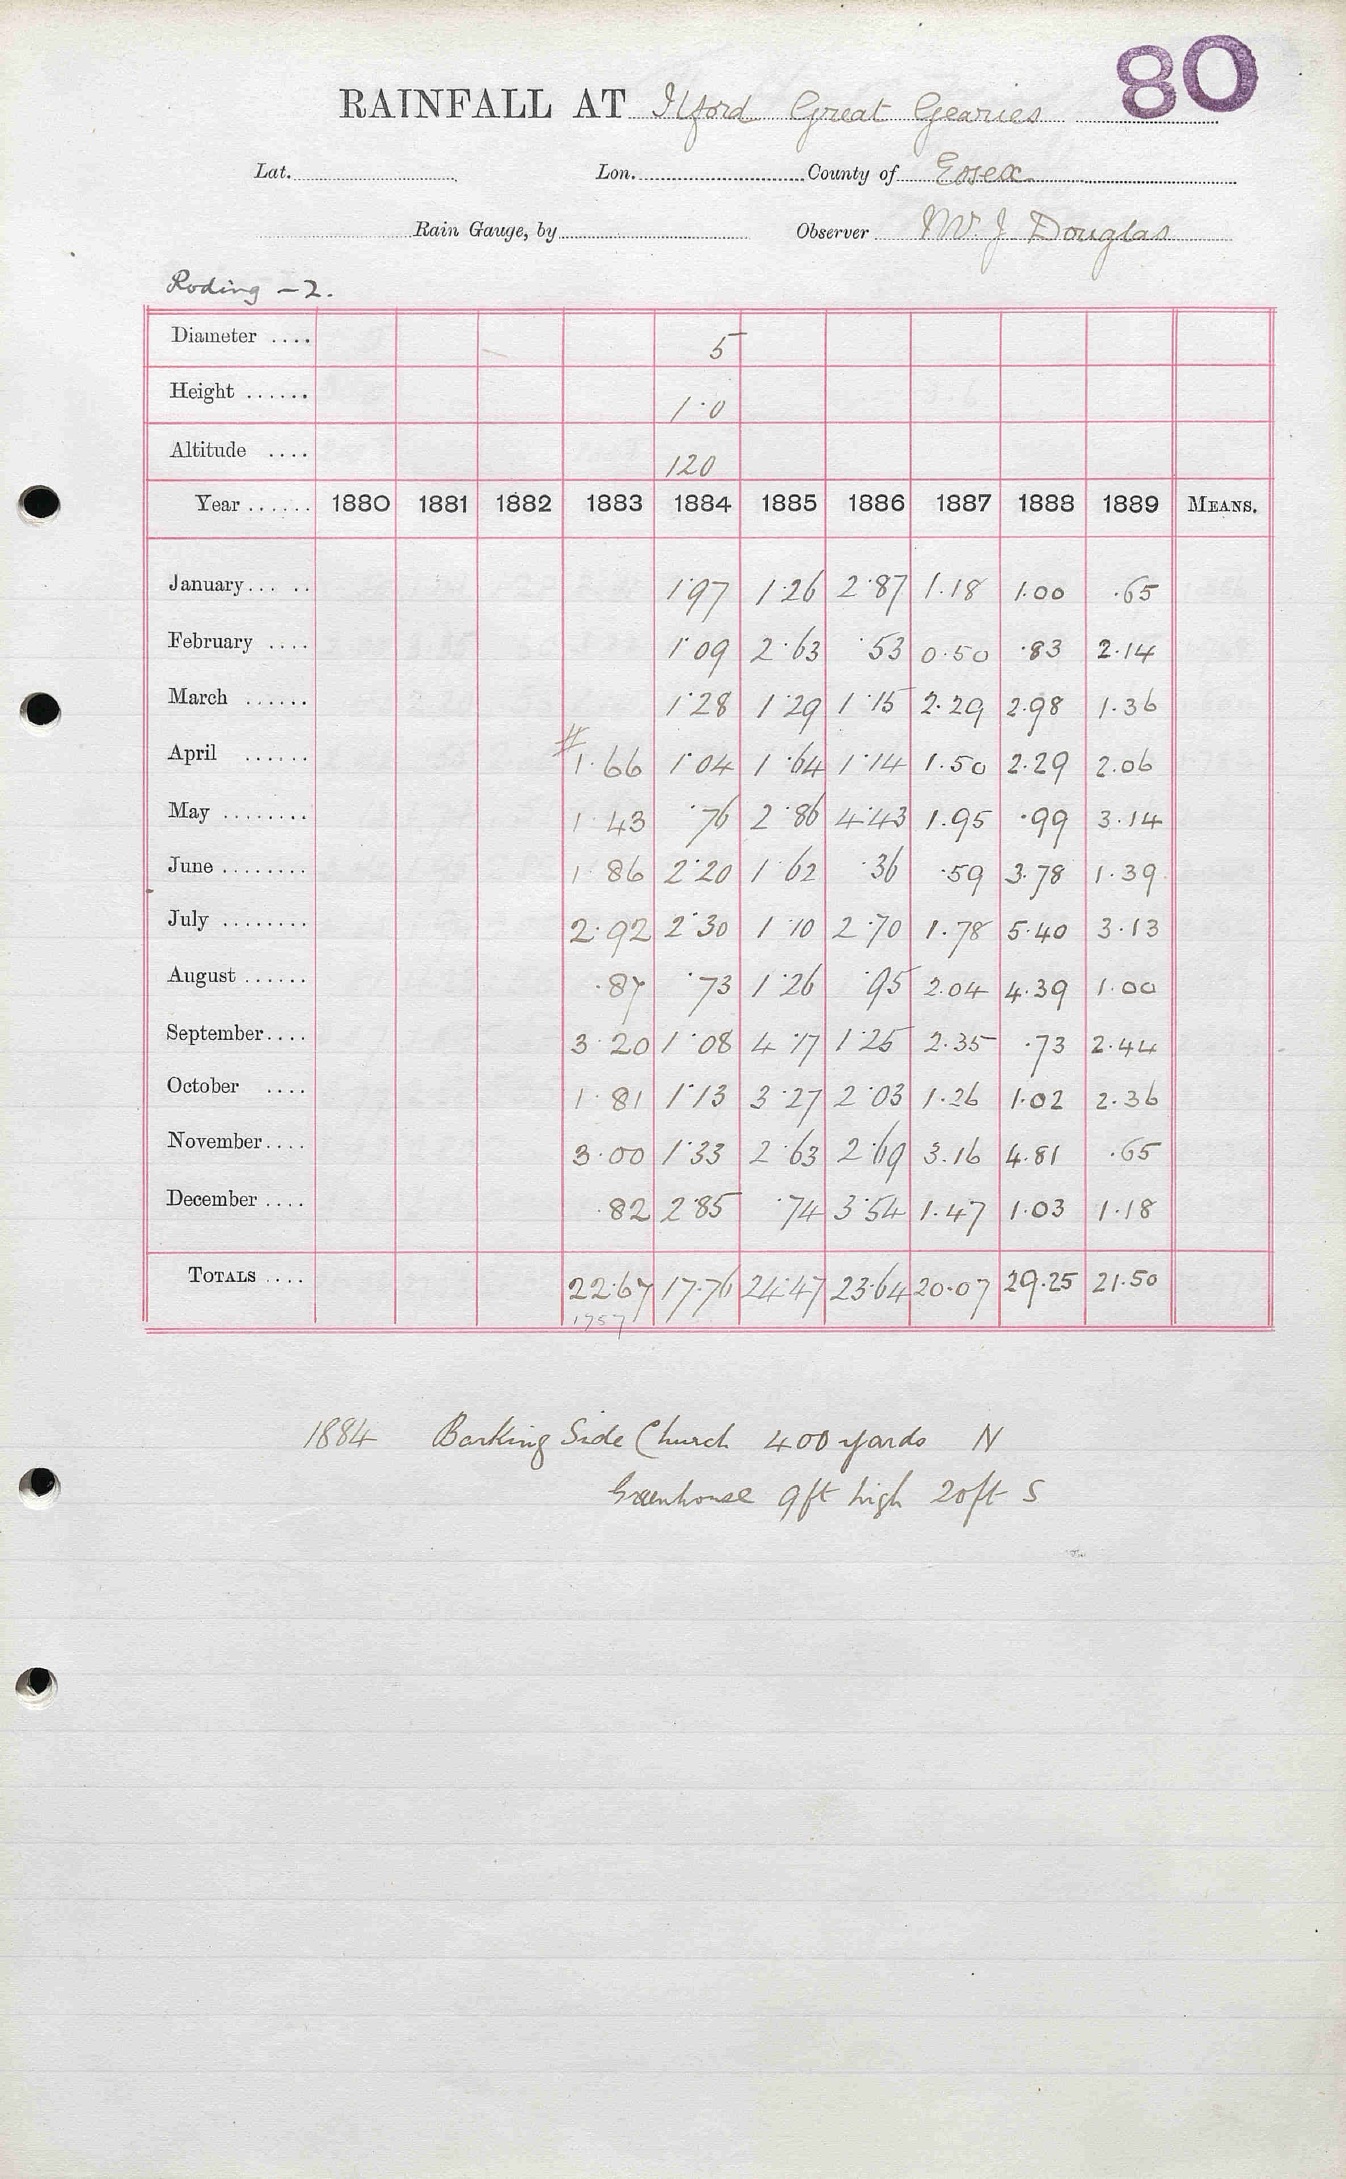 80
RAINFALL AT Ilford Great Gearies
Lat. Lon. County of Essex
Rain Gauge, by Observer W. J. Douglas
Roding - 2.
Diameter .... 5
Height ...... 1.0
Altitude .... 120
Year ...... 1880 1881 1882 1883 1884 1885 1886 1887 1888 1889 MEANS.
January ..... 1.97 1.26 2.87 1.18 1.00 .65
February .... 1.09 2.63 .53 0.50 .83 2.14
March ...... 1.28 1.29 1.15 2.29 2.98 1.36
April ...... # 1.66 1.04 1.64 1.14 1.50 2.29 2.06
May ........ 1.43 .76 2.86 4.43 1.95 .99 3.14
June ........ 1.86 2.20 1.62 .36 .59 3.78 1.39
July ........ 2.92 2.30 1.10 2.70 1.78 5.40 3.13
August ...... .87 .73 1.26 .95 2.04 4.39 1.00
September.... 3.20 1.08 4.17 1.25 2.35 .73 2.44
October .... 1.81 1.13 3.27 2.03 1.26 1.02 2.36
November.... 3.00 1.33 2.63 2.69 3.16 4.81 .65
December .... .82 2.85 .74 3.54 1.47 1.03 1.18
TOTALS .... 22.67 17.76 24.47 23.64 20.07 29.25 21.50
1757
1884 Barking Side Church 400 yards N
Greenhouse 9ft high 20ft S